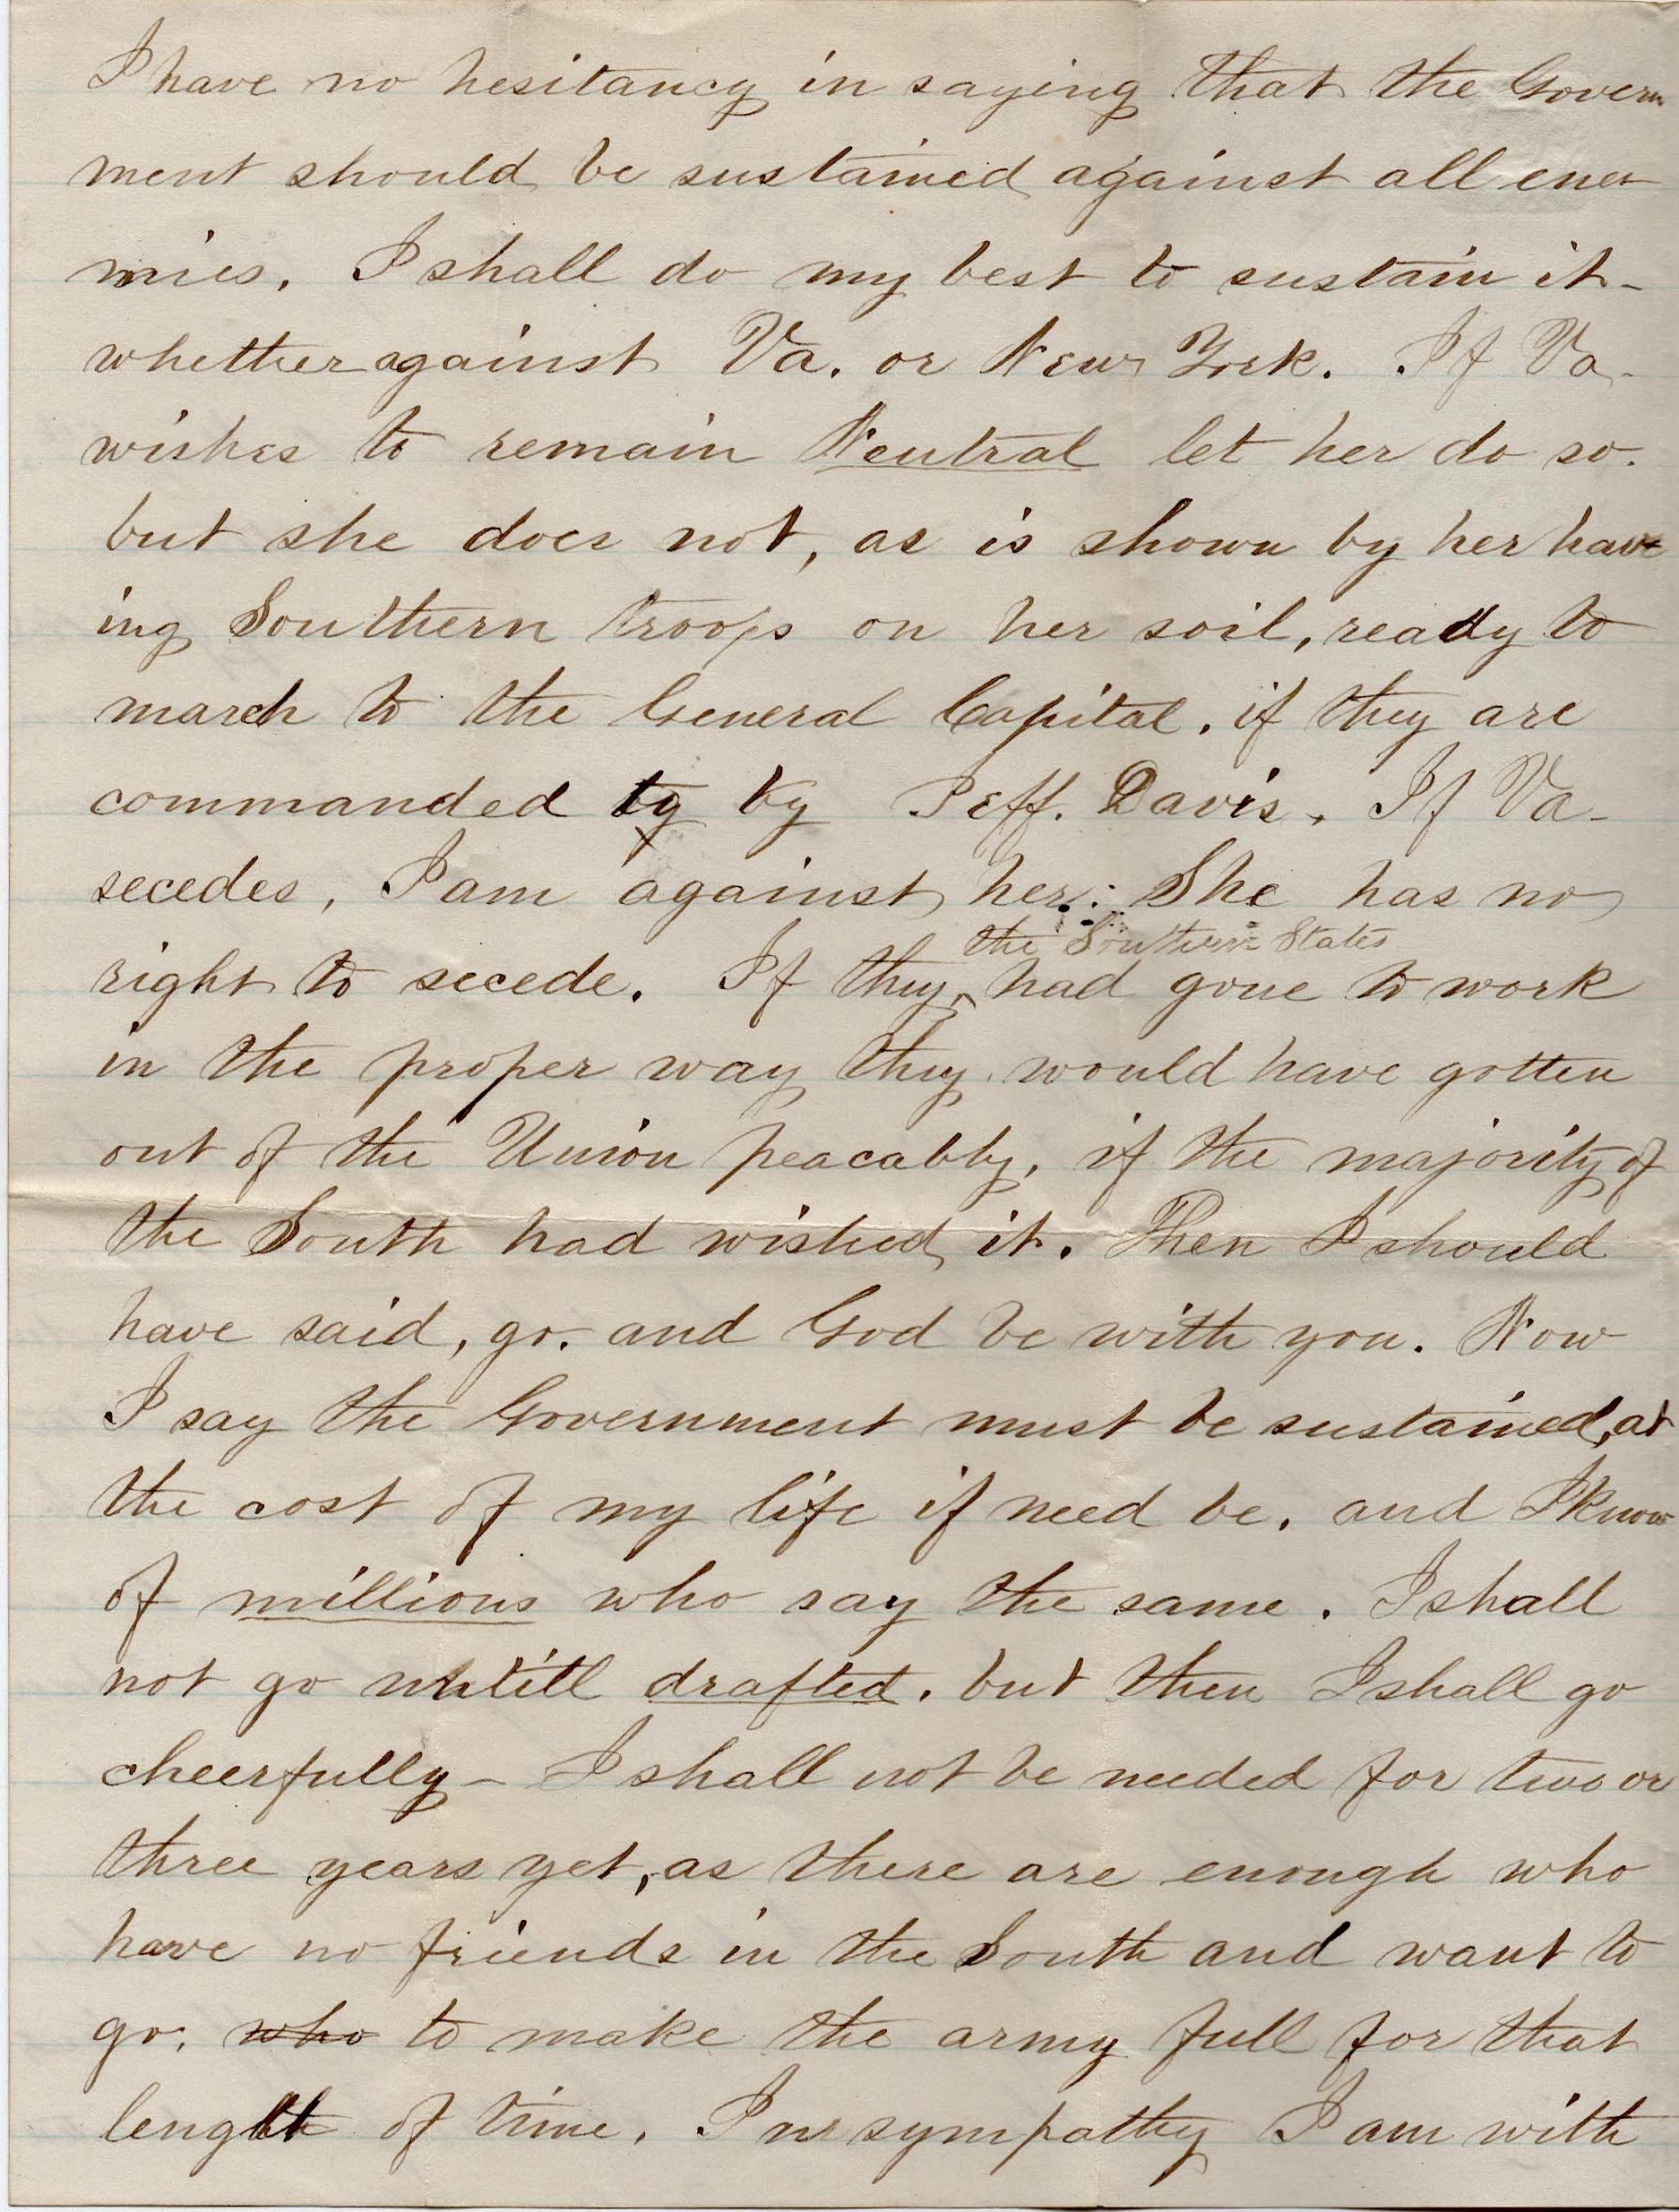 I have no hesitancy in saying that the Govern
ment should be sustained against all ene
mies. I shall do my best to sustain it -
whether against Va. or New York. If Va.
wishes to remain Neutral let her do so.
but she does not, as is shown by her hav
ing Southern troops on her soil, ready to
march to the General Capital, if they are
commanded by by Jeff. Davis. If Va.
secedes, I am against her: She has no
the Southern States
right to secede. If they ^ had gone to work
in the proper way they would have gotten
out of the Union peacably, if the majority of
the South had wished it. Then I should
have said, go. and God be with you. Now
I say the Government must be sustained, at
the cost of my life if need be. and I know
of millions who say the same. I shall
not go untill drafted. but then I shall go
cheerfully - I shall not be needed for two or
three years yet, as there are enough who
have no friends in the South and want to
go. who to make the army full for that
lenght of time. In sympathy I am with